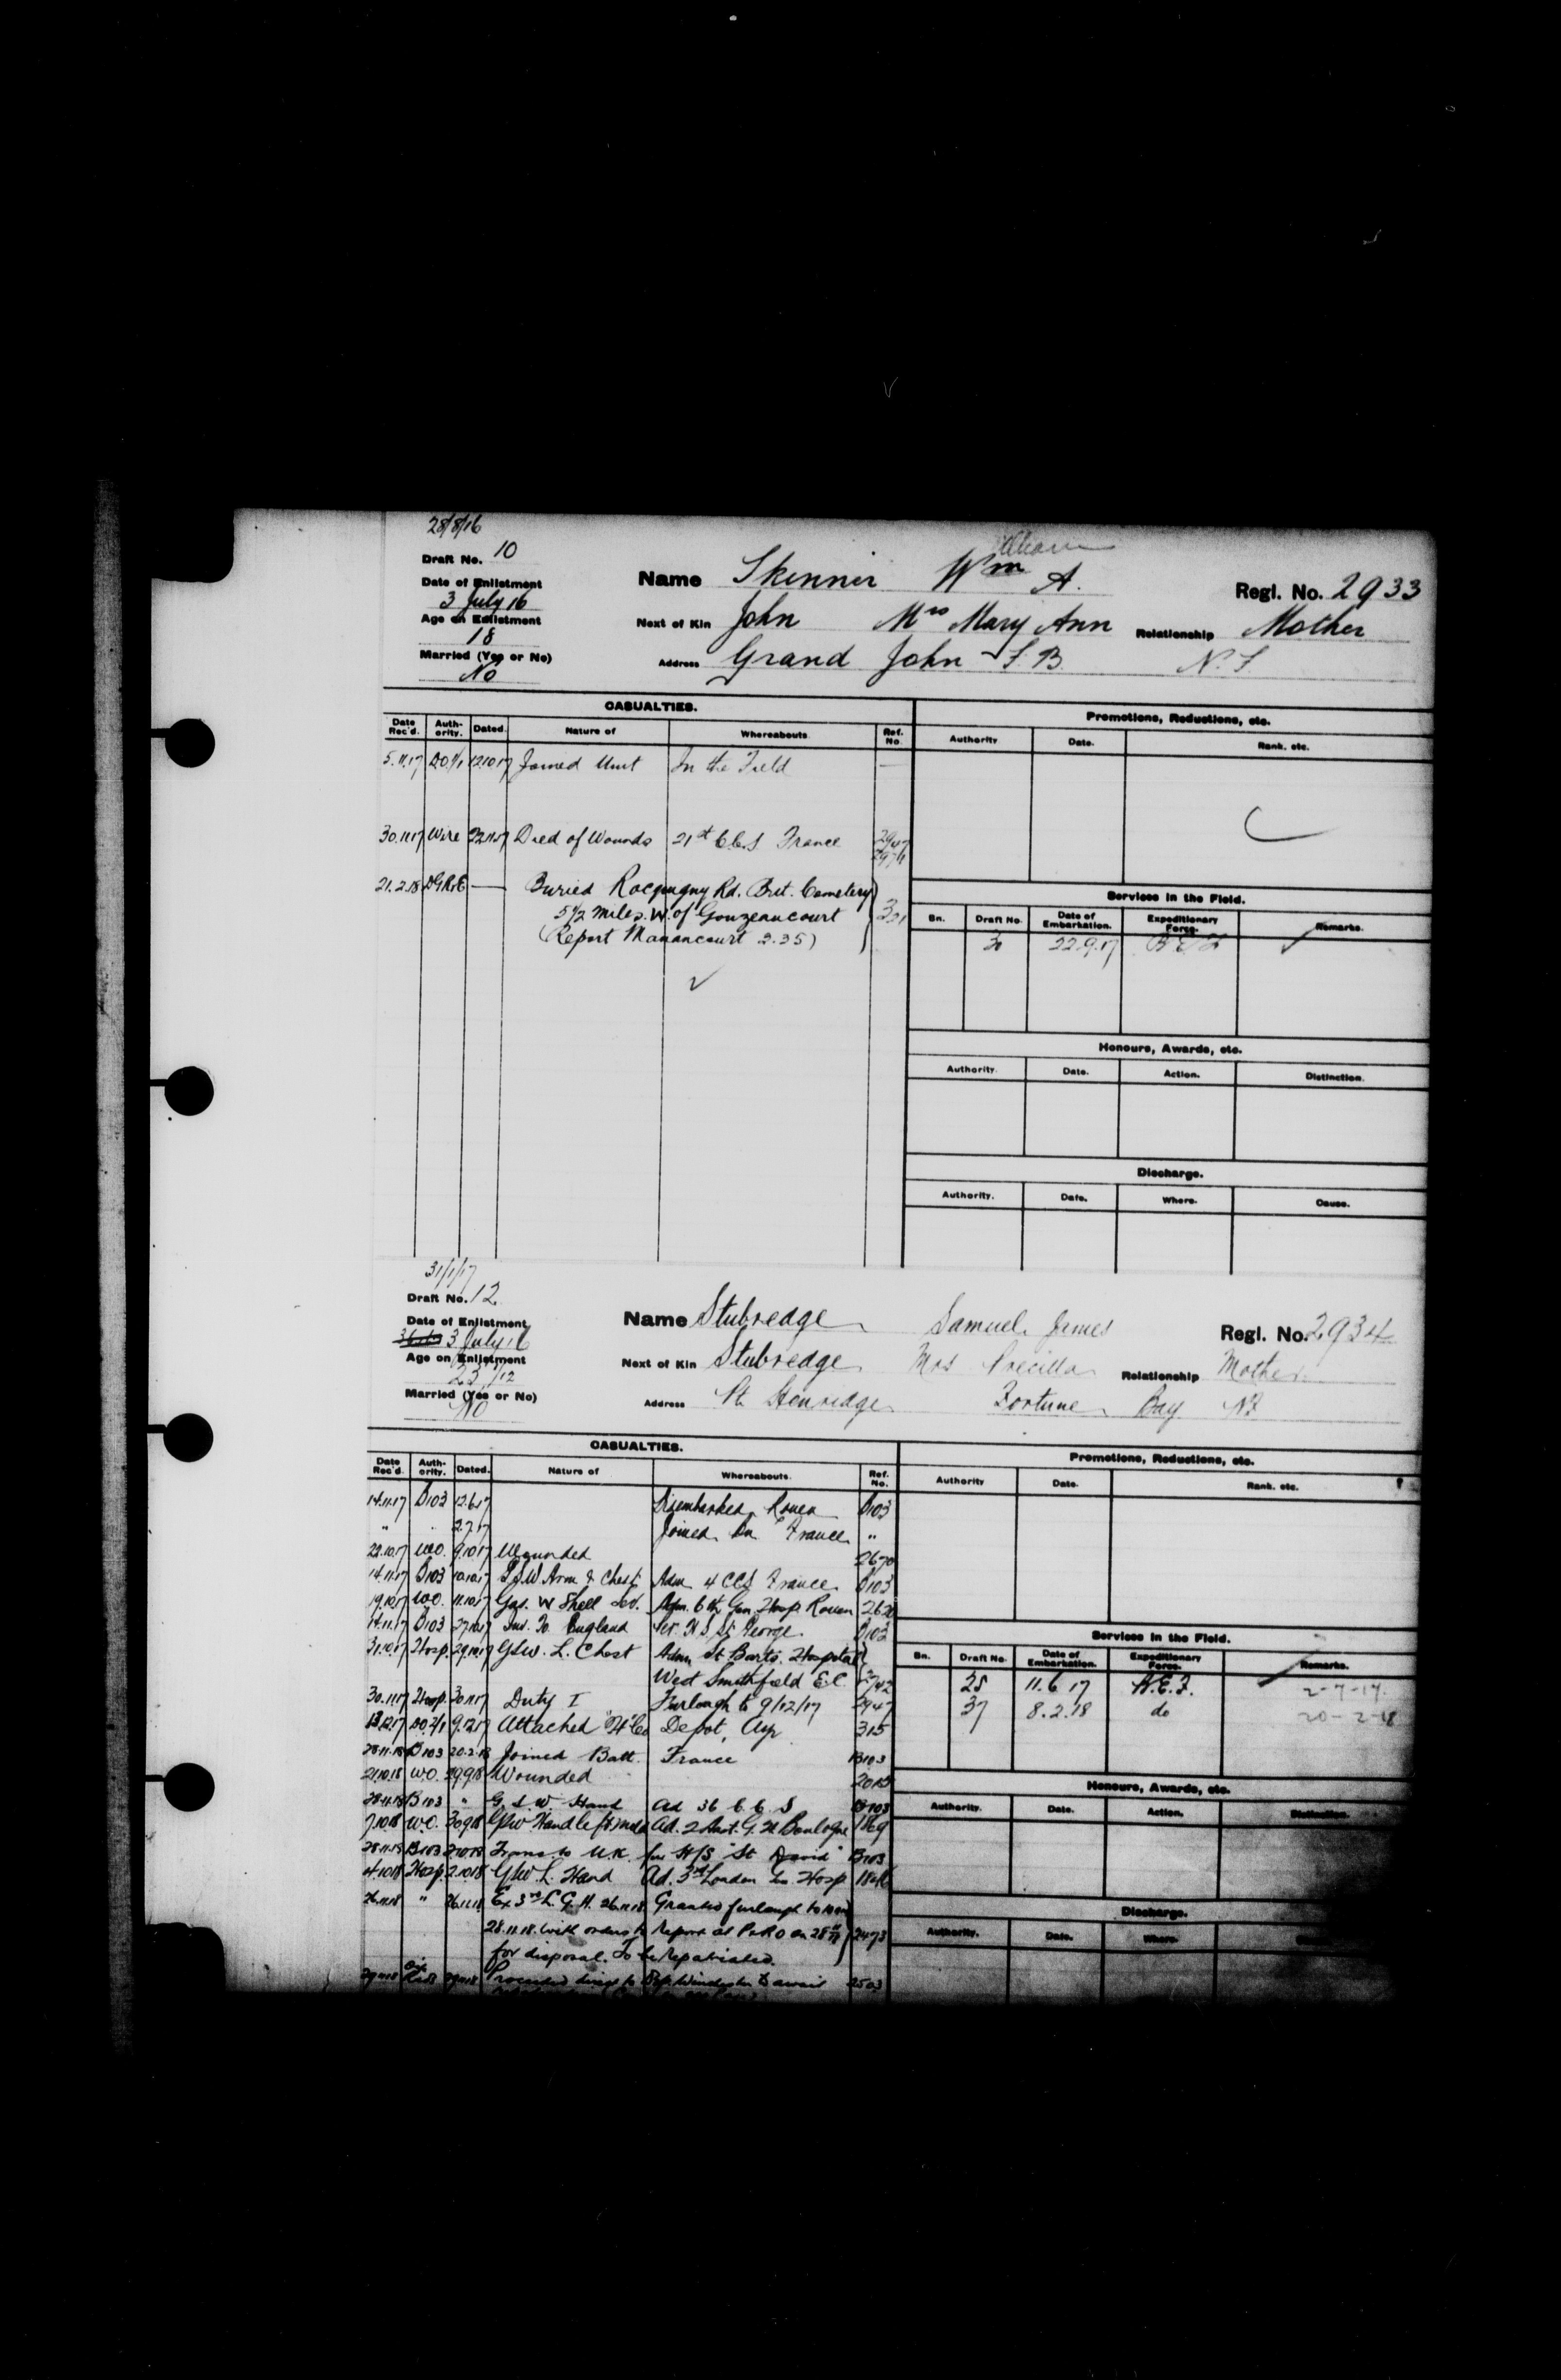 28/8/16
Draft No. 10
Date of Enlistment
3 July 16
Age on Enlistment
18
Married (Yes or No)
No
Name Skinner Wm A.
Regl. No. 2933
Next of Kin John Mrs Mary Ann Relationship Mother
Address Grand John F.B. N.F.
CASUALTIES.
Date Rec'd. Auth-ority. Dated. Nature of Whereabouts. Ref. No.
5.11.17 DO 1/1 12.10.17 Joined Unit In the Field —
30.11.17 Wire 22.11.17 Died of Wounds 21st C.C.S. France
21.2.18 DGR&E — Buried Rocquigny Rd. Brit. Cemetery
5 1/2 miles. W. of Gouzeaucourt
(Report Manancourt 2.35)
Promotions, Reductions, etc.
Authority Date. Rank. etc.
Services in the Field.
Bn. Draft No. Date of Embarkation. Expeditionary Force. Remarks.
22.9.17 B.E.F.
Honours, Awards, etc.
Authority. Date. Action. Distinction.
Discharge.
Authority. Date. Where. Cause.
31/1/17
Draft No. 12
Date of Enlistment
3 July 16
Age on Enlistment
23 /12
Married (Yes or No)
No
Name Stubredge Samuel James
Regl. No. 2934
Next of Kin Stubredge Mrs Precilla Relationship Mother
Address Pt. Fortune Bay Nf
CASUALTIES.
Date Rec'd. Auth-ority. Dated. Nature of Whereabouts. Ref. No.
14.11.17 B103 12.6.17 Disembarked Rouen B103
" 2.7.17 Joined Bn France "
22.10.17 WO. 9.10.17 Wounded 2670
14.11.17 B103 10.10.17 G.S.W Arm & Chest Adm 4 CCS France B103
19.10.17 WO. 11.10.17 Gas. W Shell Sev. Adm. 6th Gen. Hosp. Rouen
14.11.17 B103 27.10.17 Inv. To England Per H S St George B103
31.10.17 Hosp. 29.10.17 GSW. L. Chest Adm St Barts. Hospital
West Smithfield E.C. 2742
30.11.17 Hosp. 30.11.17 Duty I Furlough to 9/12/17 2947
13.12.17 DO 2/1 9.12.17 Attached "H" Co Depot, Ayr 315
28.11.18 B103 20.2.18 Joined Batt. France B103
21.10.18 W.O. 29.9.18 Wounded
28.11.18 B103 " G.S.W. Hand Ad 36 C.C.S B103
7.10.18 WO. 30.9.18 GSW Hand left Ad. 2 Aust. G. H Boulogne 1869
28.11.18 B103 2.10.18 Trans to U.K. per H/S "St David" B103
4.10.18 Hosp. 2.10.18 GSW L. Hand Ad. 3rd London Gen. Hosp
26.11.18 " 26.11.18 Ex 3rd L.G.H. 26.11.18 Granted furlough to
28.11.18. with orders to Report at P&RO on 28th 2473
for disposal. To be Repatriated.
29.11.18 29.11.18 Proceeded to Winchester to await 2503
Promotions, Reductions, etc.
Authority Date. Rank. etc.
Services in the Field.
Bn. Draft No. Date of Embarkation. Expeditionary Force. Remarks.
25 11.6.17 B.E.F. 2-7-17.
37 8.2.18 do 20-2-18
Honours, Awards, etc.
Authority. Date. Action. Distinction.
Discharge.
Authority. Date. Where.